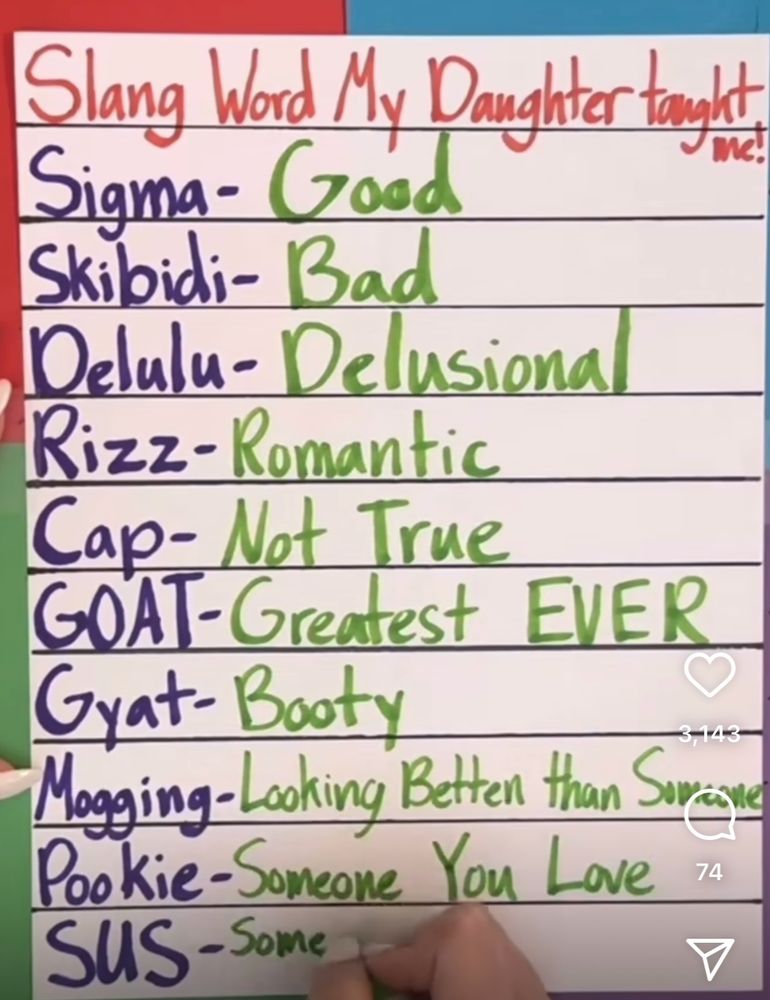 Slang Word My Daughter taught
me!
Sigma- Good
Skibidi- Bad
Delulu- Delusional
Rizz- Romantic
Cap- Not True
GOAT- Greatest EVER
Gyat- Booty
3,143
Mogging- Looking Betten than Someone
Pookie- Someone You Love
74
SUS - Some